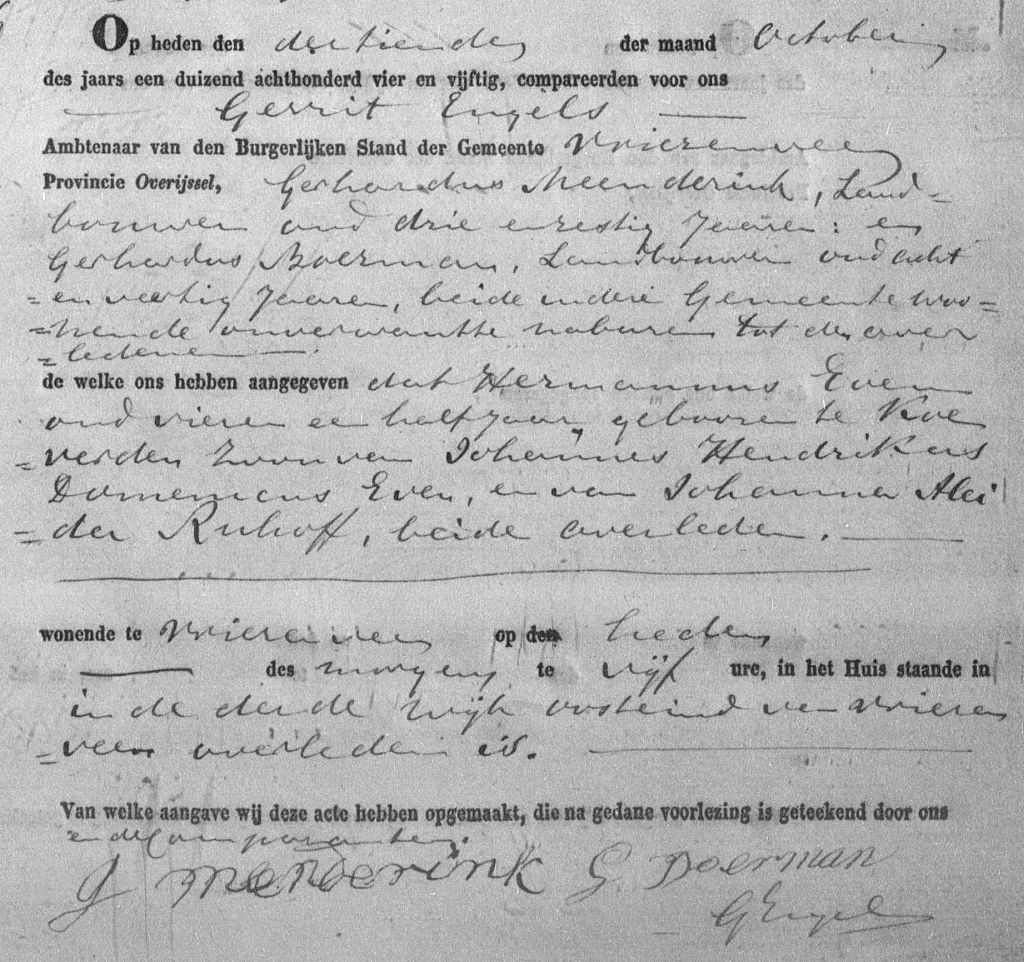 Op heden den dertienden der maand October
des jaars een duizend achthonderd vier en vijftig, compareerden voor ons
Gerrit Engels
Ambtenaar van den Burgerlijken Stand der Gemeente Vriezenveen
Provincie Overijssel, Gerhardus Meenderink, Land=
bouwer oud drie en zestig Jaaren: en
Gerhardus Boerman, Landbouwer oud acht
=en veertig Jaaren, beide in dere Gemeente woo=
=nende onverwantte naburen tot den over
=ledenen
de welke ons hebben aangegeven dat Hermannus Even
oud vier en een half Jaar, geboren te Koe
=verden zoon van Johannes Hendrikus
Domenicus Even, en van Johanna Alei
=da Ruhoff, beide overleden.
wonende te Vriezenveen op den heden
des morgens te vijf ure, in het Huis staande in
in de derde wijk oosteind van Vriezen
=veen overleden is.
Van welke aangave wij deze acte hebben opgemaakt, die na gedane voorlezing is geteekend door ons
en de Comparanten.
G Menderink G Boerman
G Engels